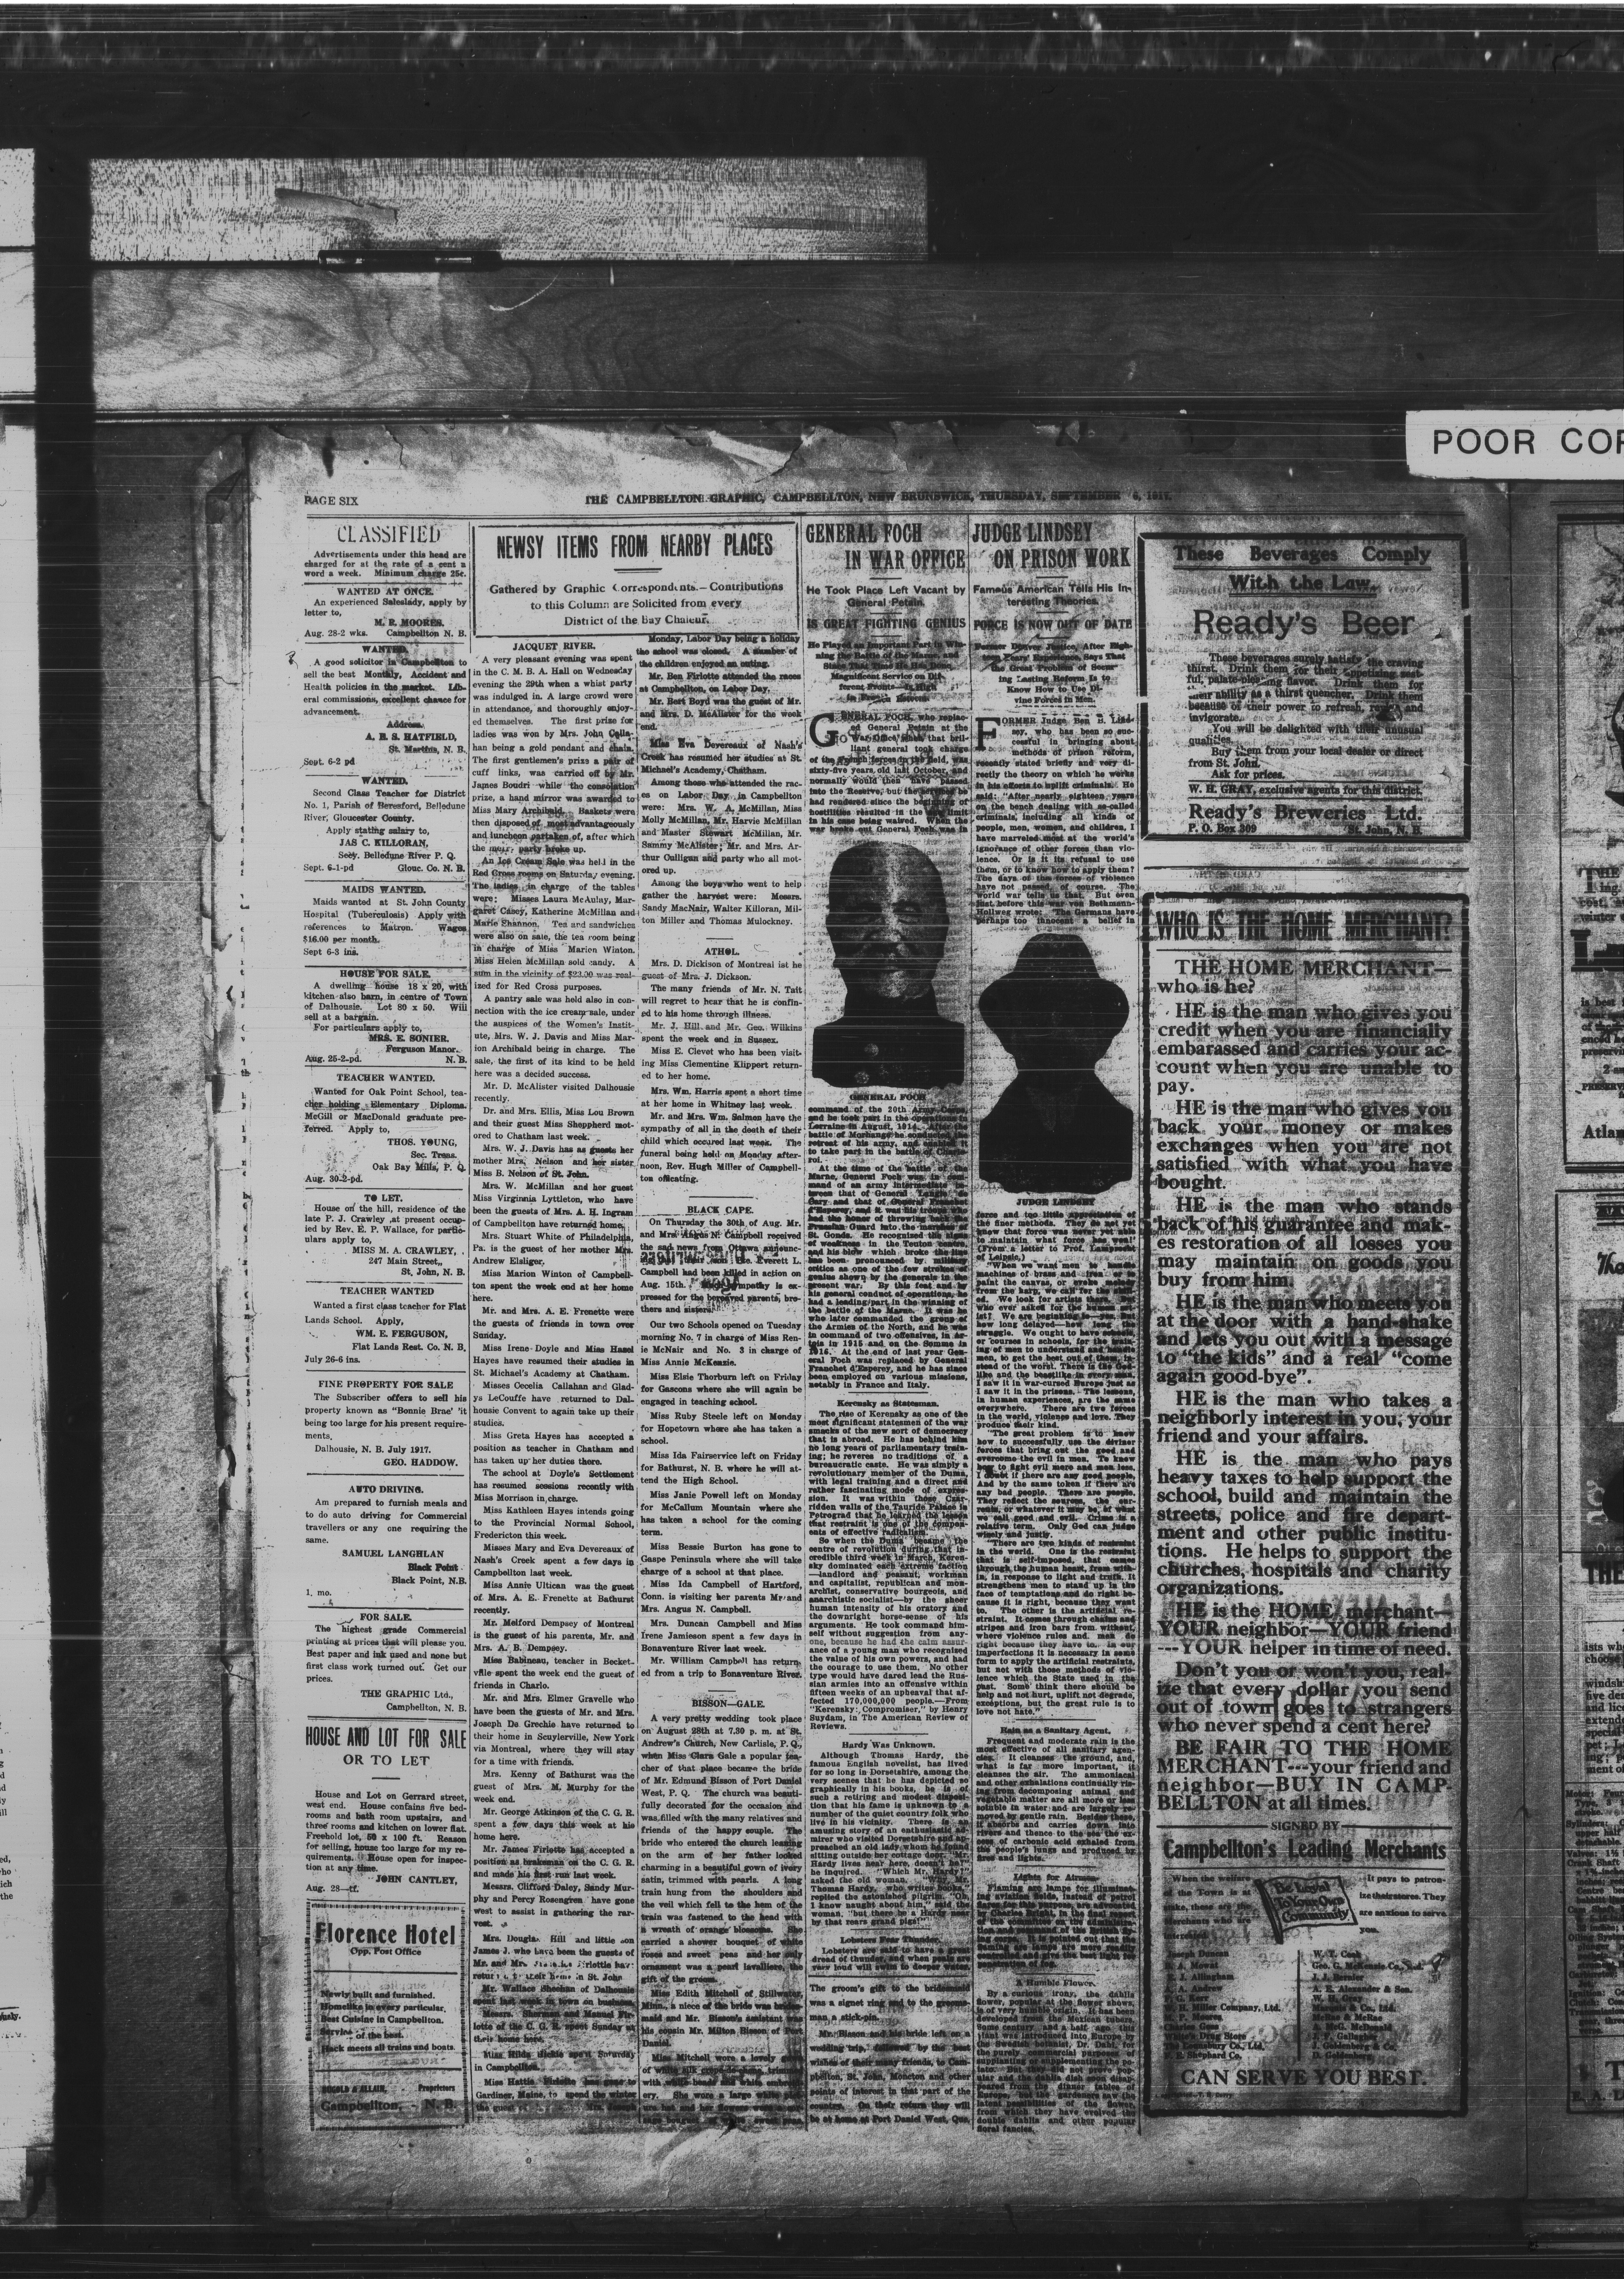 POOR COP
PAGE SIX
THE CAMPBELLTON GRAPHIC, CAMPBELLTON, NEW BRUNSWICK, THURSDAY, SEPTEMBER 6, 1917.
CLASSIFIED
Advertisements under this head are
charged for at the rate of a cent a
word a week. Minimum charge 25c.
WANTED AT ONCE.
An experienced Saleslady, apply by
letter to,
M. R. MOORES.
Aug. 28-2 wks. Campbellton N. B.
WANTED.
A good solicitor in Campbellton to
sell the best Monthly, Accident and
Health policies in the market. Lib-
eral commissions, excellent chance for
advancement.
Address.
A. B. S. HATFIELD,
St. Martins, N. B.
Sept. 6-2 pd
WANTED.
Second Class Teacher for District
No. 1, Parish of Beresford, Belledune
River, Gloucester County.
Apply stating salary to,
JAS C. KILLORAN,
Secy. Belledune River P. Q.
Sept. 6-1-pd Glouc. Co. N. B.
MAIDS WANTED.
Maids wanted at St. John County
Hospital (Tuberculosis) Apply with
references to Matron. Wages
$16.00 per month.
Sept 6-3 ins.
HOUSE FOR SALE.
A dwelling house 18 x 20, with
kitchen also barn, in centre of Town
of Dalhousie. Lot 80 x 50. Will
sell at a bargain.
For particulars apply to,
MRS. E. SONIER.
Ferguson Manor.
Aug. 25-2-pd. N. B.
TEACHER WANTED.
Wanted for Oak Point School, tea-
cher holding Elementary Diploma.
McGill or MacDonald graduate pre-
ferred. Apply to,
THOS. YOUNG,
Sec. Treas.
Oak Bay Mills, P. Q.
Aug. 30-2-pd.
TO LET.
House on the hill, residence of the
late P. J. Crawley ,at present occup-
ied by Rev. E. P. Wallace, for partic-
ulars apply to,
MISS M. A. CRAWLEY,
247 Main Street,,
St, John, N. B.
TEACHER WANTED
Wanted a first class teacher for Flat
Lands School. Apply,
WM. E. FERGUSON,
Flat Lands Rest. Co. N. B.
July 26-6 ins.
FINE PROPERTY FOR SALE
The Subscriber offers to sell his
property known as "Bonnie Brae' 'it
being too large for his present require-
ments.
Dalhousie, N. B. July 1917.
GEO. HADDOW.
AUTO DRIVING.
Am prepared to furnish meals and
to do auto driving for Commercial
travellers or any one requiring the
same.
SAMUEL LANGHLAN
Black Point
Black Point, N.B.
1. mo.
FOR SALE.
The highest grade Commercial
printing at prices that will please you.
Best paper and ink used and none but
first class work turned out. Get our
prices.
THE GRAPHIC Ltd.,
Campbellton, N. B.
HOUSE AND LOT FOR SALE
OR TO LET
House and Lot on Gerrard street,
west end. House contains five bed-
rooms and bath room upstairs, and
three rooms and kitchen on lower flat.
Freehold lot, 50 x 100 ft. Reason
for selling, house too large for my re-
quirements. House open for inspec-
tion at any time.
JOHN CANTLEY,
Aug. 28—tf.
Florence Hotel
Opp. Post Office
Newly built and furnished.
Homelike in every particular.
Best Cuisine in Campbellton.
Service of the best.
Hack meets all trains and boats.
Proprietors
Campbellton, - N. B.
NEWSY ITEMS FROM NEARBY PLACES
Gathered by Graphic Correspondents.—Contributions
to this Column are Solicited from every
District of the Bay Chaleur.
JACQUET RIVER.
A very pleasant evening was spent
in the C. M. B. A. Hall on Wednesday
evening the 29th when a whist party
was indulged in. A large crowd were
in attendance, and thoroughly enjoy-
ed themselves. The first prize for
ladies was won by Mrs. John Calla-
han being a gold pendant and chain.
The first gentlemen's prize a pair of
cuff links, was carried off by Mr.
James Boudri while the consolation
prize, a hand mirror was awarded to
Miss Mary Archibald. Baskets were
then disposed of most advantageously
and luncheon partaken of, after which
the party broke up.
An Ice Cream Sale was held in the
Red Cross rooms on Saturday evening.
The ladies in charge of the tables
were: Misses Laura McAulay, Mar-
garet Casey, Katherine McMillan and
Marie Shannon. Tea and sandwiches
were also on sale, the tea room being
in charge of Miss Marion Winton.
Miss Helen McMillan sold candy. A
sum in the vicinity of $23.00 was real-
ized for Red Cross purposes.
A pantry sale was held also in con-
nection with the ice cream sale, under
the auspices of the Women's Instit-
ute, Mrs. W. J. Davis and Miss Mar-
ion Archibald being in charge. The
sale, the first of its kind to be held
here was a decided success.
Mr. D. McAlister visited Dalhousie
recently.
Dr. and Mrs. Ellis, Miss Lou Brown
and their guest Miss Shepherd mot-
ored to Chatham last week.
Mrs. W. J. Davis has as guests her
mother Mrs. Nelson and her sister
Miss B. Nelson of St. John.
Mrs. W. McMillan and her guest
Miss Virginnia Lyttleton, who have
been the guests of Mrs. A. H. Ingram
of Campbellton have returned home.
Mrs. Stuart White of Philadelphia,
Pa. is the guest of her mother Mrs.
Andrew Elsliger.
Miss Marion Winton of Campbell-
ton spent the week end at her home
here.
Mr. and Mrs. A. E. Frenette were
the guests of friends in town over
Sunday.
Miss Irene Doyle and Miss Hazel
Hayes have resumed their studies in
St. Michael's Academy at Chatham.
Misses Cecelia Callahan and Glad-
ys LeCouffe have returned to Dal-
housie Convent to again take up their
studies.
Miss Greta Hayes has accepted a
position as teacher in Chatham and
has taken up her duties there.
The school at Doyle's Settlement
has resumed sessions recently with
Miss Morrison in charge.
Miss Kathleen Hayes intends going
to the Provincial Normal School,
Fredericton this week.
Misses Mary and Eva Devereaux of
Nash's Creek spent a few days in
Campbellton last week.
Miss Annie Ultican was the guest
of Mrs. A. E. Frenette at Bathurst
recently.
Mr. Melford Dempsey of Montreal
is the guest of his parents, Mr. and
Mrs. A. B. Dempsey.
Miss Babineau, teacher in Becket-
ville spent the week end the guest of
friends in Charlo.
Mr. and Mrs. Elmer Gravelle who
have been the guests of Mr. and Mrs.
Joseph De Grechie have returned to
their home in Scuylerville, New York
via Montreal, where they will stay
for a time with friends.
Mrs. Kenny of Bathurst was the
guest of Mrs. M. Murphy for the
week end.
Mr. George Atkinson of the C. G. R.
spent a few days this week at his
home here.
Mr. James Firlotte has accepted a
position as brakeman on the C. G. R.
and made his first run last week.
Messrs. Clifford Daley, Sandy Mur-
phy and Percy Rosengren have gone
west to assist in gathering the rar-
vest.
Mrs. Douglas Hill and little son
James J. who have been the guests of
Mr. and Mrs. Firlotte have
returned to their home in St. John
Mr. Wallace Sheehan of Dalhousie
spent last week in town on business.
Messrs. Sherman and Manuel Fir-
lotte of the C. G. R. spent Sunday at
their home here.
Miss Hilda Dickie spent Saturday
in Campbellton.
Miss Hattie Firlotte has gone to
Gardiner, Maine, to spend the winter
the guest of Mrs. Joseph
Monday, Labor Day being a holiday
the school was closed. A number of
the children enjoyed an outing.
Mr. Ben Firlotte attended the races
at Campbellton, on Labor Day.
Mr. Bert Boyd was the guest of Mr.
and Mrs. D. McAlister for the week
end.
Miss Eva Devereaux of Nash's
Creek has resumed her studies at St.
Michael's Academy, Chatham.
Among those who attended the rac-
es on Labor Day in Campbellton
were: Mrs. W. A. McMillan, Miss
Molly McMillan, Mr. Harvie McMillan
and Master Stewart McMillan, Mr.
Sammy McAlister; Mr. and Mrs. Ar-
thur Culligan and party who all mot-
ored up.
Among the boys who went to help
gather the harvest were: Messrs.
Sandy MacNair, Walter Killoran, Mil-
ton Miller and Thomas Mulockney.
ATHOL.
Mrs. D. Dickison of Montreal ist he
guest of Mrs. J. Dickson.
The many friends of Mr. N. Tait
will regret to hear that he is confin-
ed to his home through illness.
Mr. J. Hill and Mr. Geo. Wilkins
spent the week end in Sussex.
Miss E. Clevet who has been visit-
ing Miss Clementine Klippert return-
ed to her home.
Mrs. Wm. Harris spent a short time
at her home in Whitney last week.
Mr. and Mrs. Wm. Salmon have the
sympathy of all in the death of their
child which occured last week. The
funeral being held on Monday after-
noon, Rev. Hugh Miller of Campbell-
ton officating.
BLACK CAPE.
On Thursday the 30th of Aug. Mr.
and Mrs. Angus N. Campbell received
the sad news from Ottawa announc-
Everett L.
Campbell had been killed in action on
Aug. 15th. sympathy is ex-
pressed for the bereaved parents, bro-
thers and sisters.
Our two Schools opened on Tuesday
morning No. 7 in charge of Miss Ren-
ie McNair and No. 3 in charge of
Miss Annie McKenzie.
Miss Elsie Thorburn left on Friday
for Gascons where she will again be
engaged in teaching school.
Miss Ruby Steele left on Monday
for Hopetown where she has taken a
school.
Miss Ida Fairservice left on Friday
for Bathurst, N. B. where he will at-
tend the High School.
Miss Janie Powell left on Monday
for McCallum Mountain where she
has taken a school for the coming
term.
Miss Bessie Burton has gone to
Gaspe Peninsula where she will take
charge of a school at that place.
Miss Ida Campbell of Hartford,
Conn. is visiting her parents Mr and
Mrs. Angus N. Campbell.
Mrs. Duncan Campbell and Miss
Irene Jamieson spent a few days in
Bonaventure River last week.
Mr. William Campbell has return-
ed from a trip to Bonaventure River.
BISSON—GALE.
A very pretty wedding took place
on August 28th at 7.30 p. m. at St.
Andrew's Church, New Carlisle, P. Q.,
when Miss Clara Gale a popular tea-
cher of that place became the bride
of Mr. Edmund Bisson of Port Daniel
West, P. Q. The church was beauti-
fully decorated for the occasion and
was filled with the many relatives and
friends of the happy souple. The
bride who entered the church leaning
on the arm of her father looked
charming in a beautiful gown of ivory
satin, trimmed with pearls. A long
train hung from the shoulders and
the veil which fell to the hem of the
train was fastened to the head with
a wreath of orange blossoms. She
carried a shower bouquet of white
roses and sweet peas and her only
ornament was a pearl lavalliere, the
gift of the groom.
Miss Edith Mitchell of Stillwater,
Minn., a niece of the bride was brides-
maid and Mr. Bisson's assistant was
his cousin Mr. Milton Bisson of Port
Daniel.
Miss Mitchell wore a lovely gown
GENERAL FOCH
IN WAR OFFICE
He Took Place Left Vacant by
General Petain.
IS GREAT FIGHTING GENIUS
He Played an Important Part in Win-
ning the Battle of the Marne, and
Since That Time He Has Done
Magnificent Service on Dif-
ferent Fronts—Is High
in French Esteem.
GENERAL FOCH, who replac-
ed General Petain at the
War Office when that bril-
liant general took charge
of the French forces in the field, was
sixty-five years old last October, and
normally would then have passed
into the Reserve, but the services he
had rendered since the beginning of
hostilities resulted in the age limit
in his case being waived. When the
war broke out General Foch was in
GENERAL FOCH
command of the 20th Army Corps,
and he took part in the operations in
Lorraine in August, 1914. After the
battle of Morhange he conducted the
retreat of his army, and enabled it
to take part in the battle of Charle-
roi.
At the time of the battle of the
Marne, General Foch was in com-
mand of an army intermediate be-
tween that of General Langle de
Cary and that of General Franchet
d'Esperey, and it was his troops who
had the honor of throwing back the
Prussian Guard into the marshes of
St. Gonds. He recognized the signs
of weakness in the Teuton centre,
and his blow which broke the line
has been pronounced by military
critics as one of the few strokes of
genius shown by the generals in the
present war. By this feat and by
his general conduct of operations, he
had a leading part in the winning of
the battle of the Marne. It was he
who later commanded the group of
the Armies of the North, and he was
in command of two offensives, in Ar-
tois in 1915 and on the Somme in
1916. At the end of last year Gen-
eral Foch was replaced by General
Franchet d'Esperey, and he has since
been employed on various missions,
notably in France and Italy.
Kerensky as Statesman.
The rise of Kerensky as one of the
most significant statesmen of the war
smacks of the new sort of democracy
that is abroad. He has behind him
no long years of parliamentary train-
ing; he reveres no traditions of a
bureaucratic caste. He was simply a
revolutionary member of the Duma,
with legal training and a direct and
rather fascinating mode of expres-
sion. It was within those Czar-
ridden walls of the Tauride Palace in
Petrograd that he learned the lesson
that restraint is one of the compon-
ents of effective radicalism.
So when the Duma became the
centre of revolution during that in-
credible third week in March, Keren-
sky dominated each extreme faction
—landlord and peasant, workman
and capitalist, republican and mon-
archist, conservative bourgeois, and
anarchistic socialist—by the sheer
human intensity of his oratory and
the downright horse-sense of his
arguments. He took command him-
self without suggestion from any-
one, because he had the calm assur-
ance of a young man who recognised
the value of his own powers, and had
the courage to use them. No other
type would have dared lead the Rus-
sian armies into an offensive within
fifteen weeks of an upheaval that af-
fected 170,000,000 people.—From
"Kerensky: Compromiser," by Henry
Suydam, in The American Review of
Reviews.
Hardy Was Unknown.
Although Thomas Hardy, the
famous English novelist, has lived
for so long in Dorsetshire, among the
very scenes that he has depicted so
graphically in his books, he is of
such a retiring and modest disposi-
tion that his fame is unknown to a
number of the quiet country folk who
live in his vicinity. There is an
amusing story of an enthusiastic ad-
mirer who visited Dorsetshire and ap-
proached an old lady whom he found
sitting outside her cottage door. "Mr.
Hardy lives near here, doesn't he?"
he inquired. "Which Mr. Hardy?"
asked the old woman. "Why, Mr.
Thomas Hardy, who writes books,"
replied the astonished pilgrim. "Oh,
I know naught about him," said the
woman, "but there be a Hardy near
by that rears grand pigs!"
Lobsters Fear Thunder.
Lobsters are said to have a great
dread of thunder, and when peals are
very loud will swim to deeper water.
The groom's gift to the bridesmaid
was a signet ring and to the grooms-
man a stick-pin.
Mr. Bisson and his bride left on a
wedding trip, followed by the best
wishes of their many friends, to Cam-
pbellton, St. John, Moncton and other
points of interest in that part of the
country. On their return they will
be at home at Port Daniel West, Que.
JUDGE LINDSEY
ON PRISON WORK
Famous American Tells His In-
teresting Theories.
FORCE IS NOW OUT OF DATE
Former Denver Justice, After Eigh-
teen Years' Experience, Says That
the Great Problem of Secur-
ing Lasting Reform Is to
Know How to Use Di-
vine Forces in Men.
FORMER Judge Ben B. Lind-
sey, who has been so suc-
cessful in bringing about
methods of prison reform,
recently stated briefly and very di-
rectly the theory on which he works
in his efforts to uplift criminals. He
said: "After nearly eighteen years
on the bench dealing with so-called
criminals, including all kinds of
people, men, women, and children, I
have marveled most at the world's
ignorance of other forces than vio-
lence. Or is it its refusal to use
them, or to know how to apply them?
The days of the forces of violence
have not passed, of course. The
world war tells us that. But even
just before this war von Bethmann-
Hollweg wrote: 'The Germans have
perhaps too innocent a belief in
JUDGE LINDSEY
force and too little appreciation of
the finer methods. They do not yet
know that force was never yet able
to maintain what force has won!'
(From a letter to Prof. Lamprecht
of Leipsic.)
"When we want men to handle
machines of brass and iron or to
paint the canvas, or evoke melody
from the harp, we call for the skill-
ed. We look for artists there. But
who ever asked for the human art-
ist? We are beginning to—yes. But
how long delayed—how long the
struggle. We ought to have schools,
or courses in schools, for the train-
ing of men to understand and handle
men, to get the best out of them, in-
stead of the worst. There is the God-
like and the beastlike in every man.
I saw it in war-cursed Europe just as
I saw it in the prisons. The lessons,
in human experiences, are the same
everywhere. There are two forces
in the world, violence and love. They
produce their kind.
"The great problem is to know
how to successfully use the diviner
forces that bring out the good and
overcome the evil in men. To know
how to fight evil more and men less.
I doubt if there are any good people.
And by the same token if there are
any bad people. There are people.
They reflect the sources, the cur-
rents, or whatever it may be, of what
we call good and evil. Crime is a
relative term. Only God can judge
wisely and justly.
"There are two kinds of restraint
in the world. One is the restraint
that is self-imposed, that comes
through the human heart, from with-
in, in response to light and truth. It
strengthens men to stand up in the
face of temptations and do right be-
cause it is right, because they want
to. The other is the artificial re-
straint. It comes through chains and
stripes and iron bars from without,
where violence rules and men do
right because they have to. In our
imperfections it is necessary in some
form to apply the artificial restraints,
but not with those methods of vio-
lence which the State used in the
past. Some think there should be
help and not hurt, uplift not degrade,
exceptions, but the great rule is to
love not hate."
Rain as a Sanitary Agent.
Frequent and moderate rain is the
most effective of all sanitary agen-
cies. It cleanses the ground, and,
what is far more important, it
cleanses the air. The ammoniacal
and other exhalations continually ris-
ing from decomposing animal and
vegetable matter are all more or less
soluble in water and are largely re-
moved by gentle rain. Besides these,
it absorbs and carries down into
rivers and thence to the sea the ex-
cess of carbonic acid exhaled from
the people's lungs and produced by
fires and lights.
Lights for Airmen.
Flaming arc lamps for illuminat-
ing aviation fields, instead of petrol
flares for this purpose, are advocated
by Charles Bright, in the final report
of the committee on the administra-
tion and command of the British fly-
ing corps. It is pointed out that the
flaming arc lamps are more readily
controlled and give the best light for
penetration of fog.
A Humble Flower.
By a curious irony, the dahlia
flower, popular at the flower shows,
is of very humble origin. It has been
developed from the Mexican tubers.
Some century and a half ago this
plant was introduced into Europe by
the Swedish botanist, Dr. Dahl, for
the purely commercial purposes of
supplanting or supplementing the po-
tato. But the tuber did not prove pop-
ular and the dahlia dish soon disap-
peared from the dinner tables of
Europe, but the gardeners saw the
latent possibilities of the flower,
from which they have evolved the
double dahlia and other popular
floral fancies.
These Beverages Comply
With the Law.
Ready's Beer
These beverages surely satisfy the craving
thirst. Drink them for their appetizing, zest-
ful, palate-pleasing flavor. Drink them for
their ability as a thirst quencher. Drink them
because of their power to refresh, revive and
invigorate.
You will be delighted with their unusual
qualities.
Buy them from your local dealer or direct
from St. John.
Ask for prices.
W. H. GRAY, exclusive agents for this district.
Ready's Breweries Ltd.
P. O. Box 309 St. John, N. B.
WHO IS THE HOME MERCHANT?
THE HOME MERCHANT—
who is he?
HE is the man who gives you
credit when you are financially
embarassed and carries your ac-
count when you are unable to
pay.
HE is the man who gives you
back your money or makes
exchanges when you are not
satisfied with what you have
bought.
HE is the man who stands
back of his guarantee and mak-
es restoration of all losses you
may maintain on goods you
buy from him.
HE is the man who meets you
at the door with a hand-shake
and lets you out with a message
to "the kids" and a real "come
again good-bye".
HE is the man who takes a
neighborly interest in you, your
friend and your affairs.
HE is the man who pays
heavy taxes to help support the
school, build and maintain the
streets, police and fire depart-
ment and other public institu-
tions. He helps to support the
churches, hospitals and charity
organizations.
HE is the HOME merchant—
YOUR neighbor—YOUR friend
---YOUR helper in time of need.
Don't you or won't you, real-
ize that every dollar you send
out of town goes to strangers
who never spend a cent here?
BE FAIR TO THE HOME
MERCHANT---your friend and
neighbor—BUY IN CAMP-
BELLTON at all times.
SIGNED BY
Campbellton's Leading Merchants
When the welfare
of the Town is at
stake, these are the
Merchants who are
interested.
Be Loyal
To Your Own
Community
It pays to patron-
ize these stores. They
are anxious to serve
you.
Joseph Duncan
D. A. Mowat
R. J. Allingham
A. A. Andrew
F. G. Kerr
W. H. Miller Company, Ltd.
M. F. Moores
Charles Cens
Drug Store
Co., Ltd.
Shephard Co.
W. T. Cook
Geo. G. McKenzie Co., Ltd.
J. J. Bernier
A. E. Alexander & Son.
W. H. Gray
Marquis & Co., Ltd.
McRae & McRae
A. McG. McDonald
J. P. Gallagher
J. Goldenberg & Co.
D. Goldenberg
CAN SERVE YOU BEST.